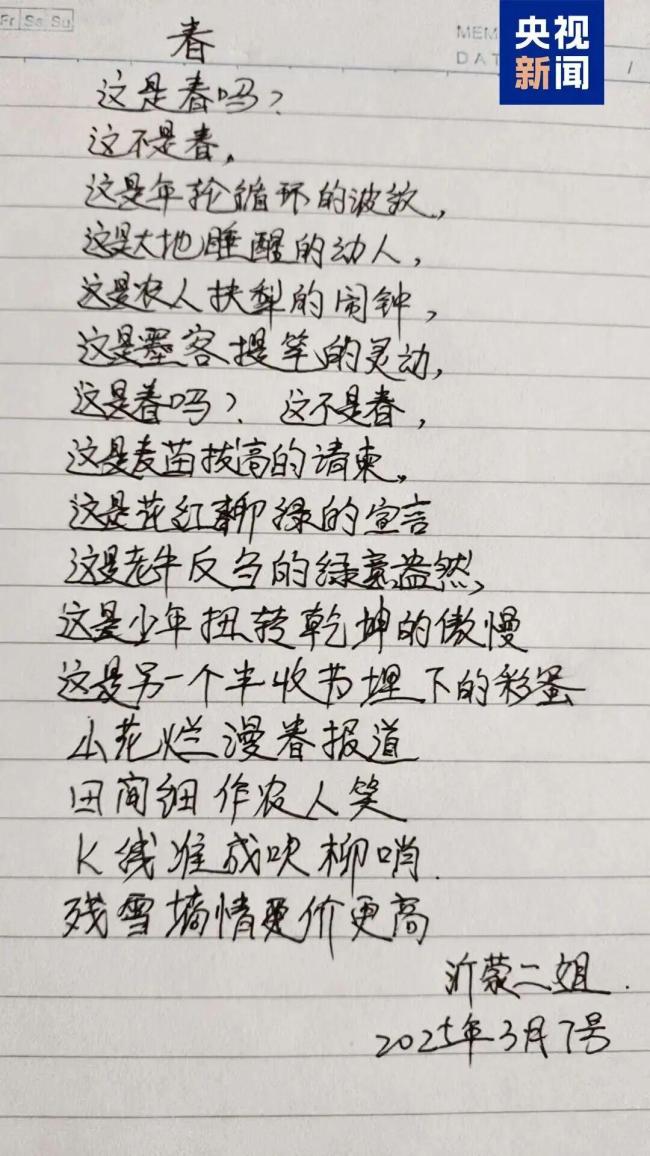 Fr Sa Su
MEM
DAT
/
央视
新闻
春
这是春吗?
这不是春,
这是年轮循环的波纹,
这是大地睡醒的动人,
这是农人扶犁的闹钟,
这是墨客提笔的灵动,
这是春吗? 这不是春,
这是麦苗拔高的请柬,
这是花红柳绿的宣言
这是老牛反刍的绿意盎然,
这是少年扭转乾坤的傲慢
这是另一个丰收节埋下的彩蛋
山花烂漫春报道
田间细作农人笑
K线准成吹柳哨.
残雪墒情更价更高
沂蒙二姐.
2025年3月7号